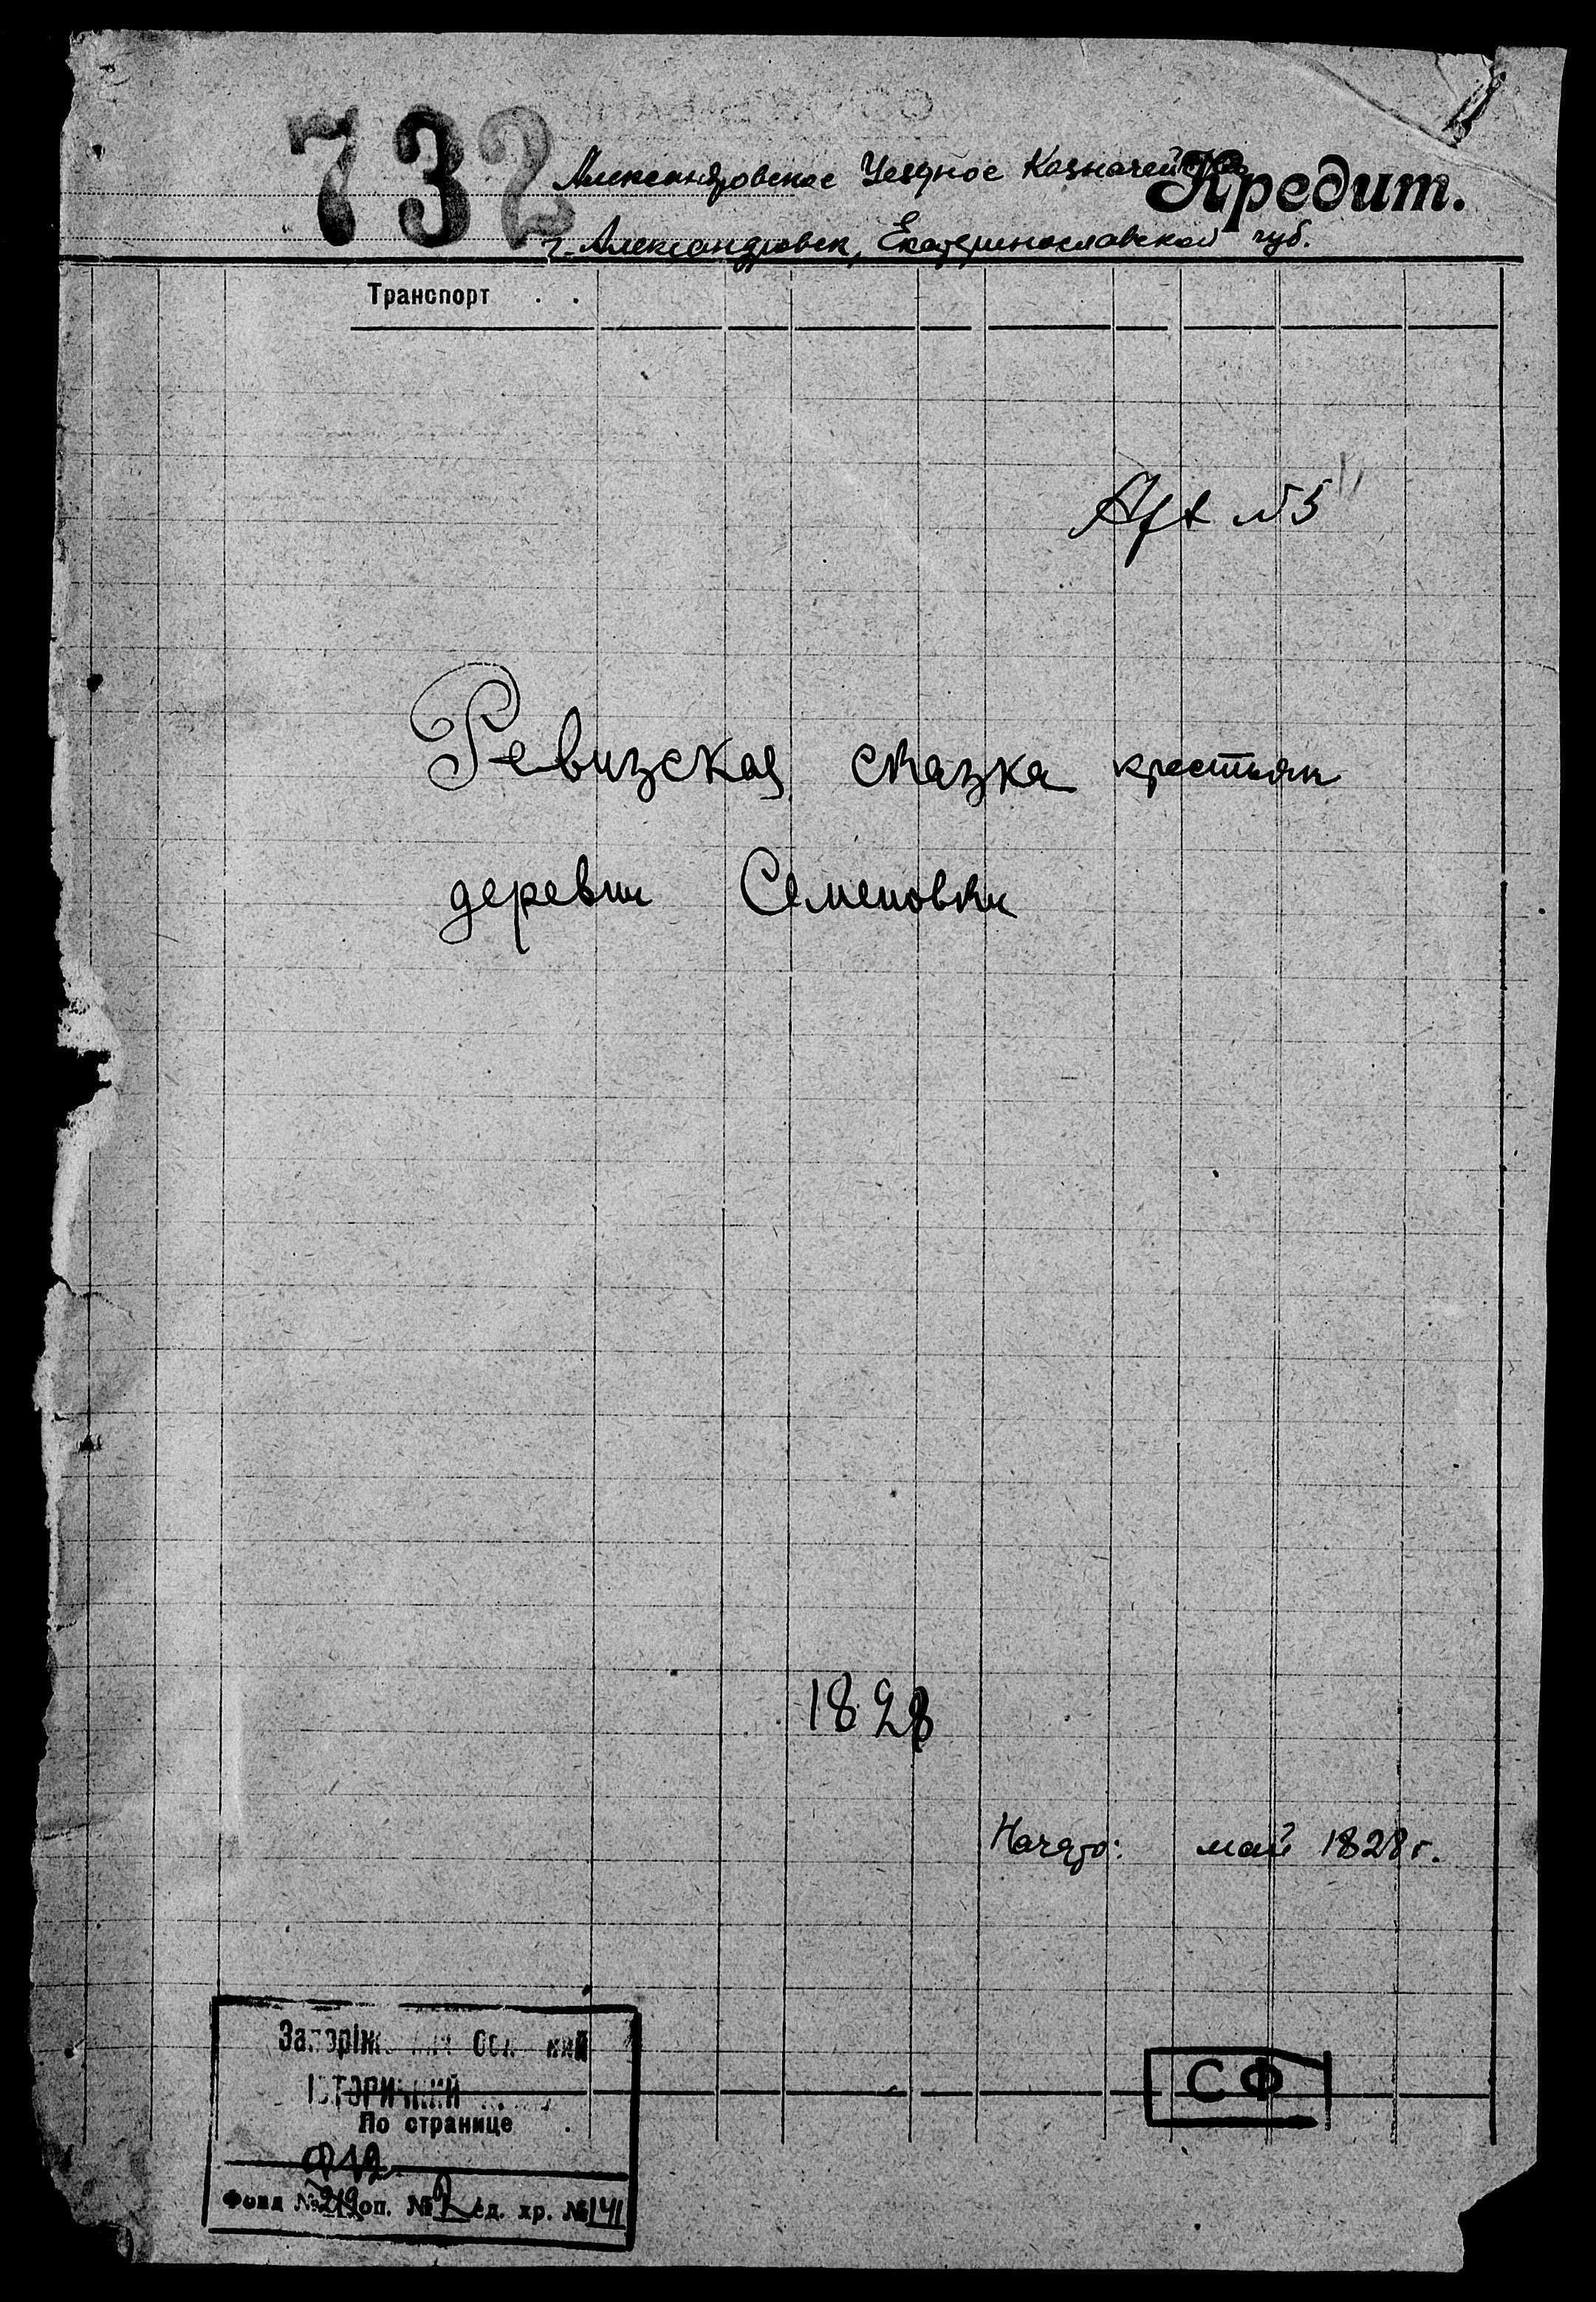 732
Александровское Уездное Казначейство
Кредит.
г. Александровск, Екатеринославской губ.
Транспорт . .
№5
Ревизская сказка крестьян
деревни Семеновки
1828
Начато: май 1828 г.
СФ
По странице
Фонд № оп. № 2 ед. хр. № 141